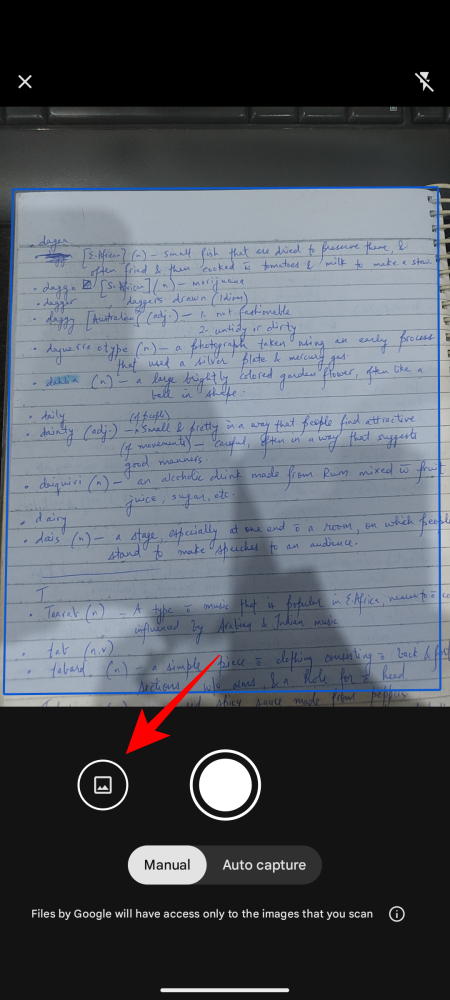 dagga
[E.African] (n) – small fish that are dried to preserve them, &
often fried & then cooked in tomatoes & milk to make a stew.
• dagga [S.African] (n) – marijuana
• dagger daggers drawn (Idiom)
• daggy [Australian] (adj.) – 1. not fashionable
2. untidy or dirty
• daguerreotype (n) – a photograph taken using an early process
that used a silver plate & mercury gas
• dahlia (n) – a large brightly colored garden flower, often like a
ball in shape.
• daily (of people)
• dainty (adj.) → small & pretty in a way that people find attractive
(of movements) – careful, often in a way that suggests
good manners.
• daiquiri (n) – an alcoholic drink made from Rum mixed w̄ fruit
juice, sugar, etc.
• dairy
• dais (n) – a stage, especially at one end of a room, on which people
stand to make speeches to an audience.
T
• Taarab (n) – A type of music that is popular in E.Africa,
influenced by Arabian & Indian music
• tab (n.v)
• tabard (n) – a simple piece of clothing consisting of back & front
sections w/o arms, & a hole for head
spicy sauce made from peppers
Manual Auto capture
Files by Google will have access only to the images that you scan